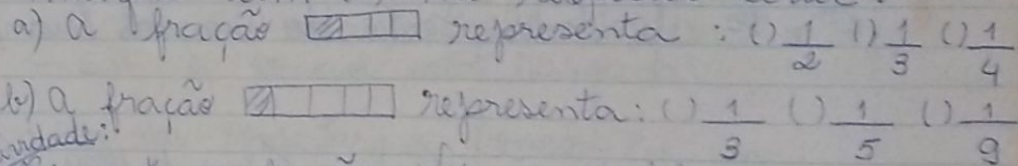 a) a fração representa : ( ) 1/2 ( ) 1/3 ( ) 1/4
b) a fração representa: ( ) 1/3 ( ) 1/5 ( ) 1/9